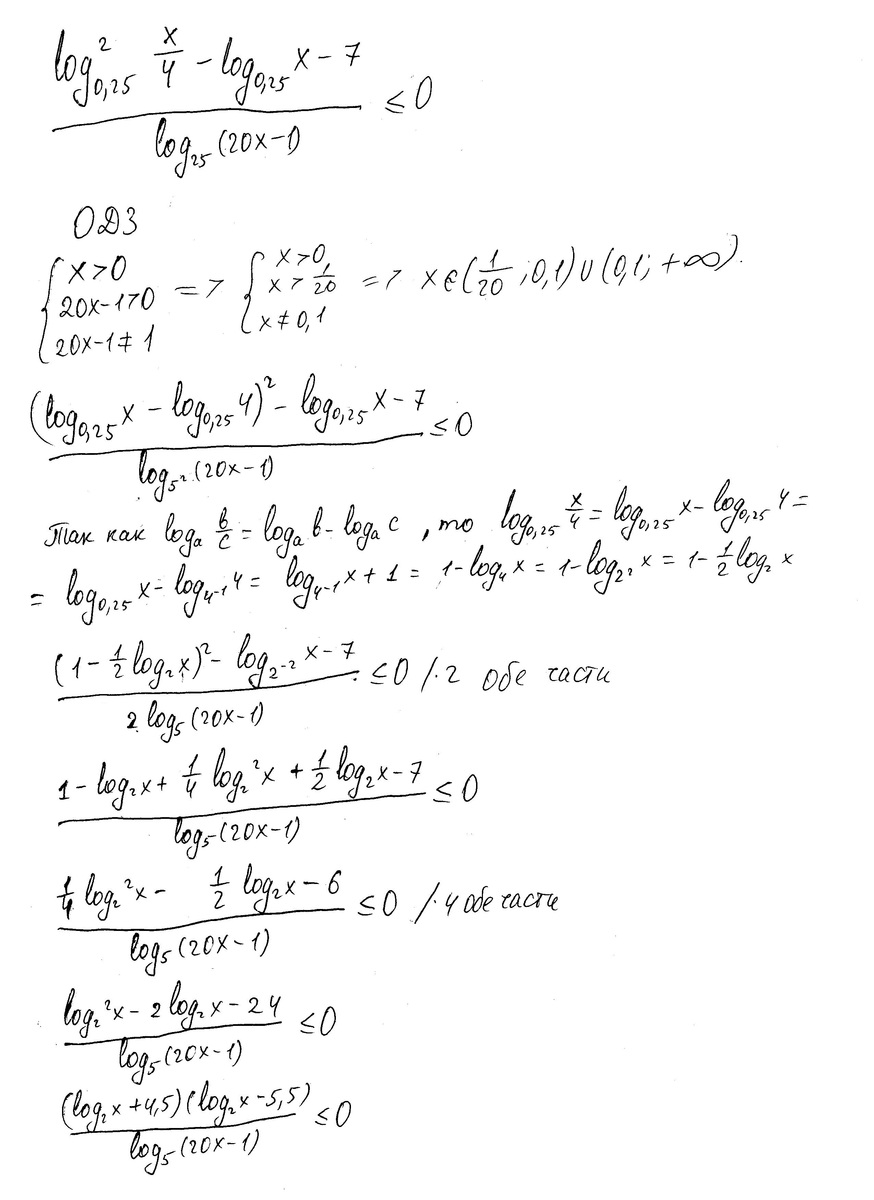 (log²_{0,25} x/4 − log_{0,25} x − 7) / log_{25}(20x−1) ≤ 0
ОДЗ
{ x>0; 20x−1>0; 20x−1≠1 => { x>0,; x>1/20; x≠0,1 => x∈(1/20;0,1)∪(0,1;+∞).
((log_{0,25} x − log_{0,25} 4)² − log_{0,25} x − 7) / log_{5²}(20x−1) ≤ 0
Так как log_a b/c = log_a b − log_a c, то log_{0,25} x/4 = log_{0,25} x − log_{0,25} 4 =
= log_{0,25} x − log_{4^{-1}} 4 = log_{4^{-1}} x + 1 = 1 − log_4 x = 1 − log_{2²} x = 1 − 1/2 log_2 x
((1 − 1/2 log_2 x)² − log_{2^{-2}} x − 7) / (2 log_5(20x−1)) ≤ 0 /·2 обе части
(1 − log_2 x + 1/4 log_2² x + 1/2 log_2 x − 7) / log_5(20x−1) ≤ 0
(1/4 log_2² x − 1/2 log_2 x − 6) / log_5(20x−1) ≤ 0 /·4 обе части
(log_2² x − 2 log_2 x − 24) / log_5(20x−1) ≤ 0
((log_2 x + 4,5)(log_2 x − 5,5)) / log_5(20x−1) ≤ 0